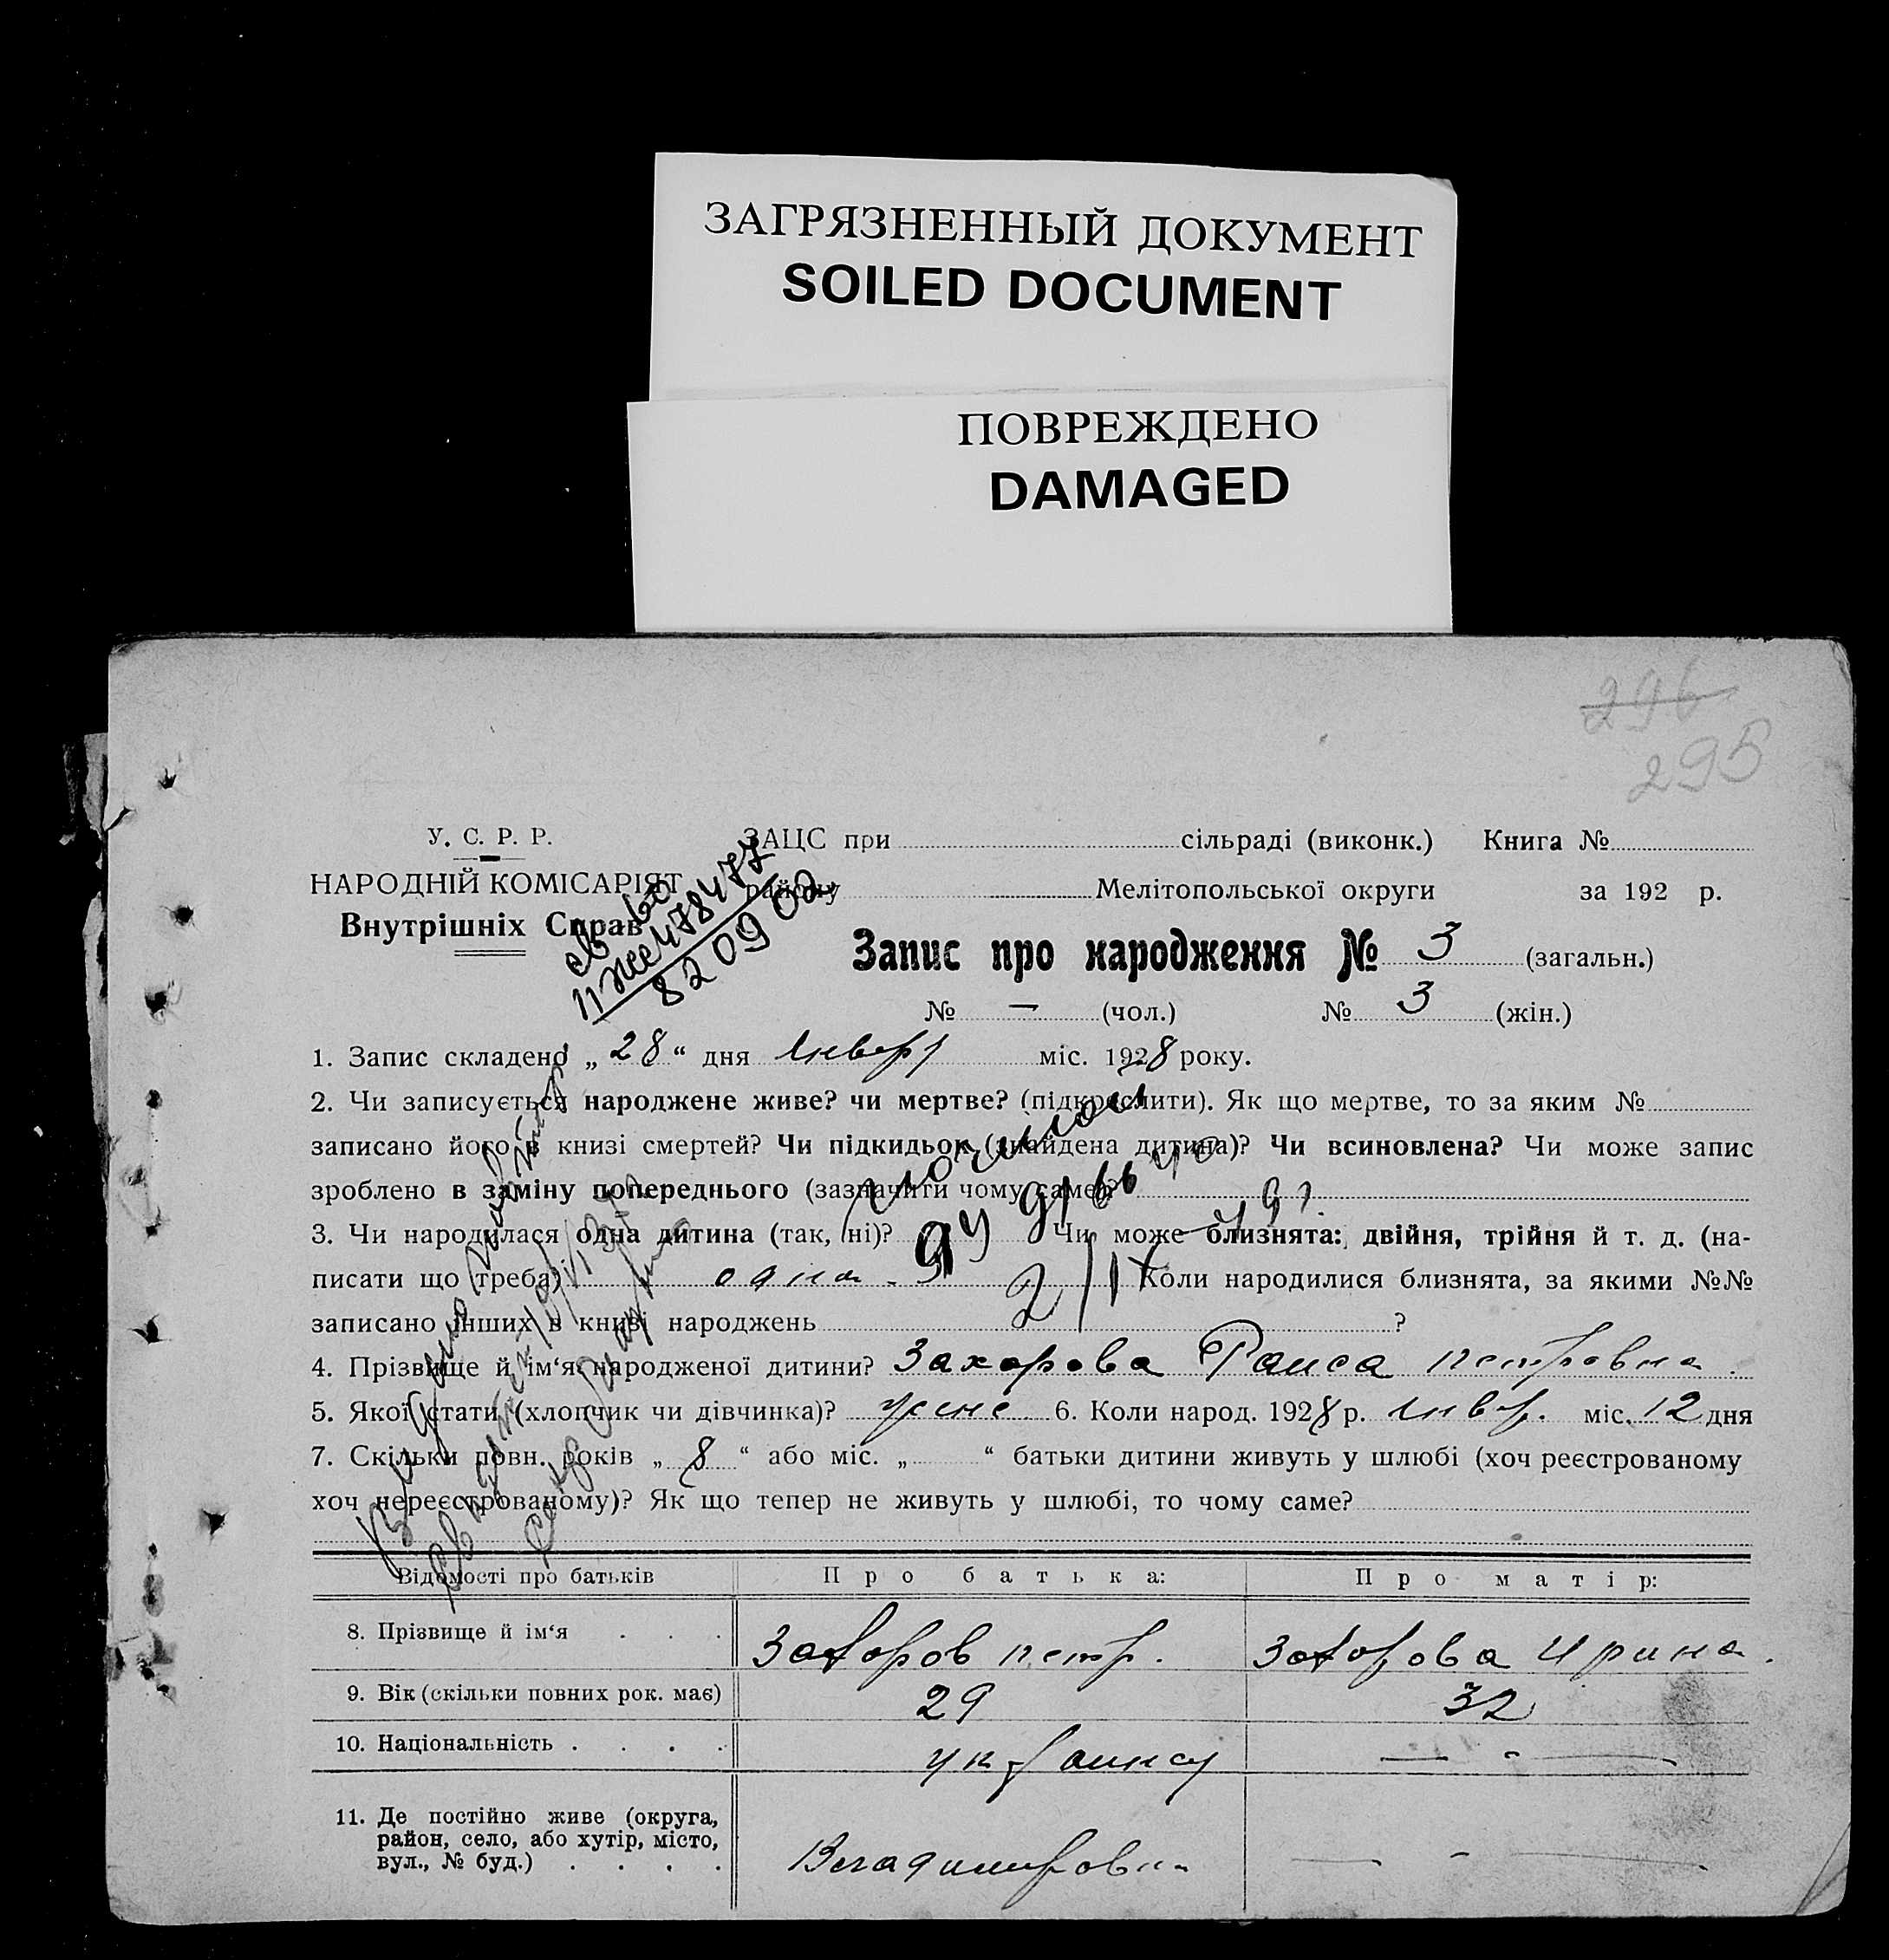 ЗАГРЯЗНЕННЫЙ ДОКУМЕНТ
SOILED DOCUMENT
ПОВРЕЖДЕНО
DAMAGED
296
295
У. С. Р. Р.
НАРОДНІЙ КОМІСАРІЯТ
Внутрішніх Справ
ЗАЦС при сільраді (виконк.) Книга №
району Мелітопольської округи за 192 р.
Запис про народження № 3 (загальн.)
№ — (чол.) № 3 (жін.)
478477
820902
1. Запис складено „ 28 “ дня январ міс. 1928 року.
2. Чи записується народжене живе? чи мертве? (підкреслити). Як що мертве, то за яким №
записано його в книзі смертей? Чи підкидьок (знайдена дитина)? Чи всиновлена? Чи може запис
зроблено в заміну попереднього (зазначити чому саме)?
3. Чи народилася одна дитина (так, ні)? Чи може близнята: двійня, трійня й т. д. (на-
писати що треба) одна Коли народилися близнята, за якими №№
записано інших в книзі народжень ?
4. Прізвище й ім‘я народженої дитини? Захорова Раиса петровна
5. Якої стати (хлопчик чи дівчинка)? женс 6. Коли народ. 1928 р. январ. міс. 12 дня
7. Скільки повн. років „ 8 “ або міс. „ “ батьки дитини живуть у шлюбі (хоч реєстрованому
хоч нереєстрованому)? Як що тепер не живуть у шлюбі, то чому саме?
Відомості про батьків Про батька: Про матір:
8. Прізвище й ім‘я . . . Захоров петр. Захорова Ирина.
9. Вік (скільки повних рок. має) 29 32
10. Національність . . . . — " —
11. Де постійно живе (округа,
район, село, або хутір, місто,
вул., № буд.) . . . . Владимировка — " —